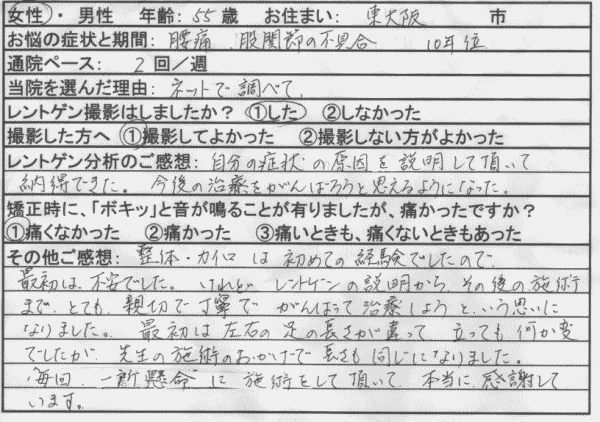 女性・男性 年齢:55歳 お住まい:東大阪市
お悩の症状と期間:腰痛 股関節の不具合 10年位
通院ペース:2回/週
当院を選んだ理由:ネットで調べて、
レントゲン撮影はしましたか?①した ②しなかった
撮影した方へ ①撮影してよかった ②撮影しない方がよかった
レントゲン分析のご感想:自分の症状の原因を説明して頂いて
納得できた。今後の治療をがんばろうと思えるようになった。
矯正時に、「ボキッ」と音が鳴ることが有りましたが、痛かったですか?
①痛くなかった ②痛かった ③痛いときも、痛くないときもあった
その他ご感想:整体・カイロは初めての経験でしたので
最初は不安でした。けれどレントゲンの説明から、その後の施術
まで、とても親切で丁寧でがんばって治療しようという思いに
なりました。最初は左右の足の長さが違って立っても何か変
でしたが、先生の施術のおかげで長さも同じになりました。
毎回、一所懸命に施術をして頂いて、本当に感謝して
います。